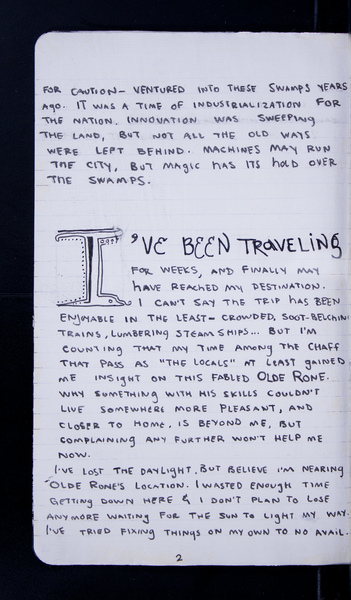 FOR CAUTION- VENTURED INTO THESE SWAMPS YEARS
AGO. IT WAS A TIME OF INDUSTRIALIZATION FOR
THE NATION. INNOVATION WAS SWEEPING
THE LAND, BUT NOT ALL THE OLD WAYS
WERE LEFT BEHIND. MACHINES MAY RUN
THE CITY, BUT MAGIC HAS ITS HOLD OVER
THE SWAMPS.
I'VE BEEN TRAVELING
FOR WEEKS, AND FINALLY MAY
HAVE REACHED MY DESTINATION.
I CAN'T SAY THE TRIP HAS BEEN
ENJOYABLE IN THE LEAST- CROWDED, SOOT-BELCHING
TRAINS, LUMBERING STEAM SHIPS... BUT I'M
COUNTING THAT MY TIME AMONG THE CHAFF
THAT PASS AS "THE LOCALS" AT LEAST GAINED
ME INSIGHT ON THIS FABLED OLDE RONE.
WHY SOMETHING WITH HIS SKILLS COULDN'T
LIVE SOMEWHERE MORE PLEASANT, AND
CLOSER TO HOME, IS BEYOND ME, BUT
COMPLAINING ANY FURTHER WON'T HELP ME
NOW.
I'VE LOST THE DAYLIGHT, BUT BELIEVE I'M NEARING
OLDE RONE'S LOCATION. I WASTED ENOUGH TIME
GETTING DOWN HERE & I DON'T PLAN TO LOSE
ANYMORE WAITING FOR THE SUN TO LIGHT MY WAY.
I'VE TRIED FIXING THINGS ON MY OWN TO NO AVAIL.
2